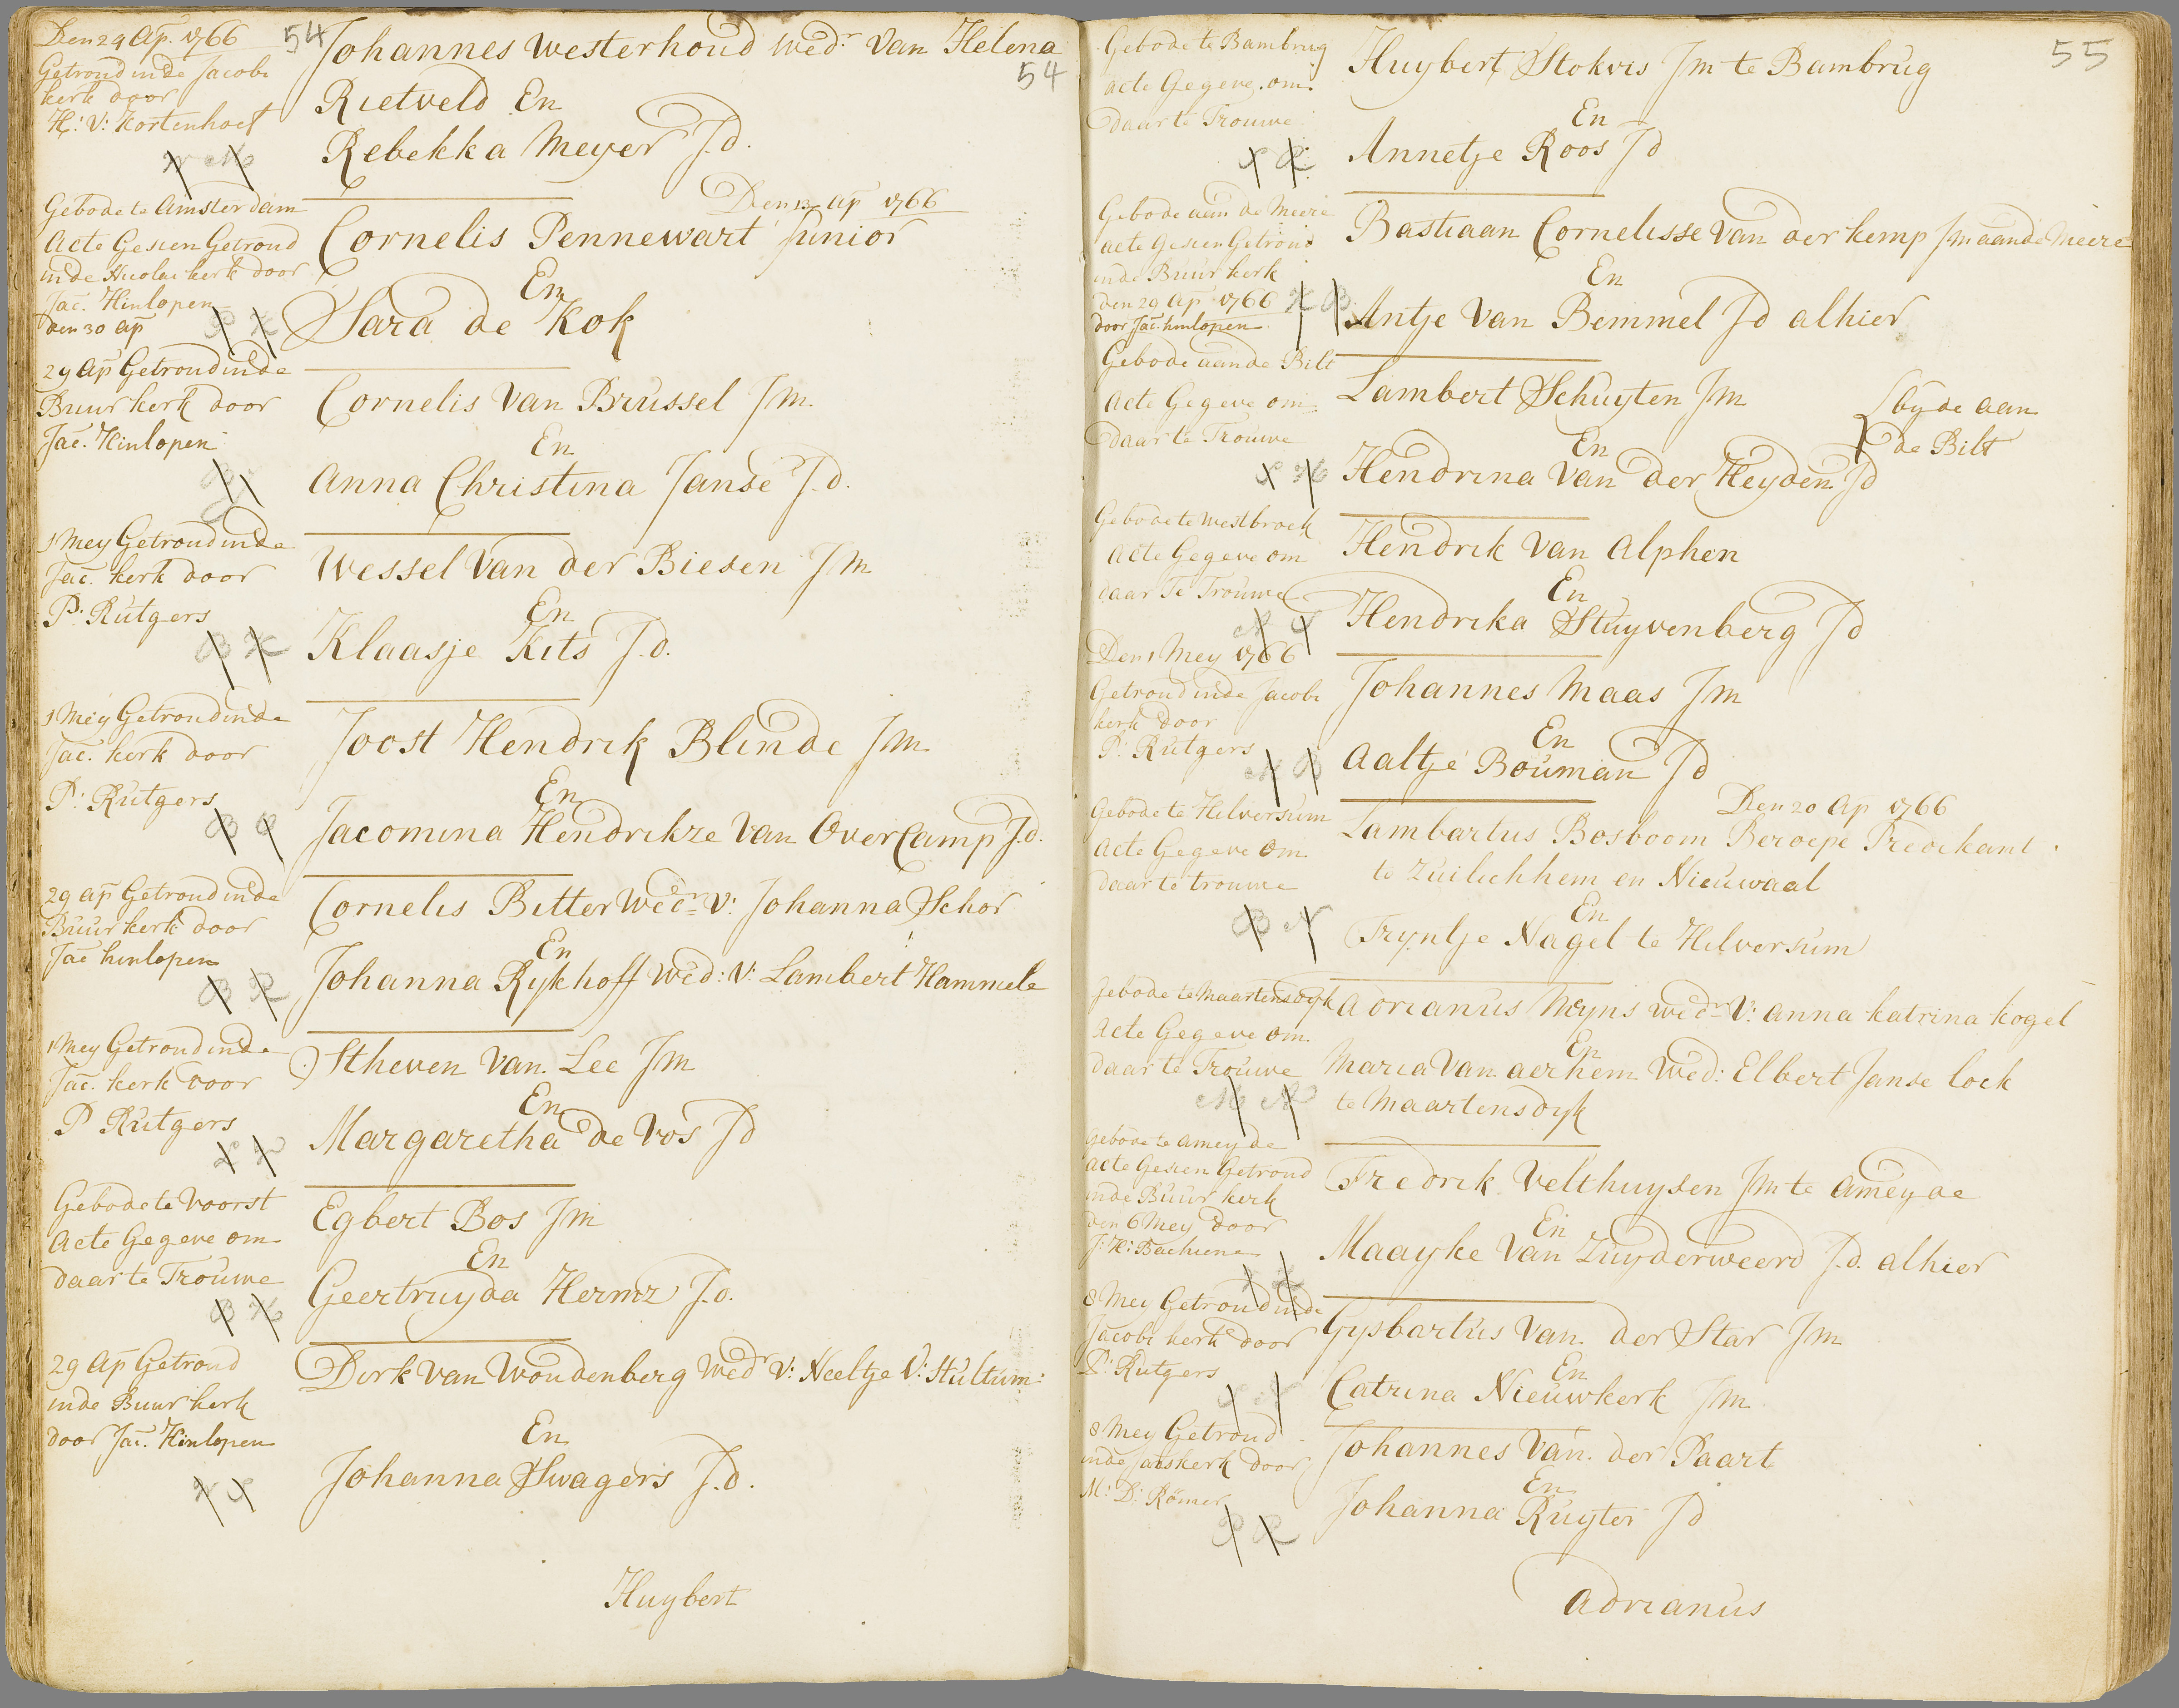 54
Den 29 Ap. 1766
Getroud in de Jacobi
kerk door
H: V: Kortenhoef
Johannes Westerhoud Wedr. Van Helena
54
Rietveld En
Rebekka Meyer J.d.
W M
Gebode te Amsterdam
Acte Gesien Getroud
in de Nicolai kerk door
Jac. Hinlopen
den 30 Ap
Den 13 Ap 1766
Cornelis Pennewart Junior
En
Sara de Kok
P K
29 Ap Getroud in de
Buur kerk door
Jac. Hinlopen
Cornelis Van Brussel Jm.
En
Anna Christina Janse J.d.
B J
1 Mey Getroud in de
Jac. kerk door
P: Rutgers
Wessel Van der Biesen Jm
En
Klaasje Kits J.d.
B K
1 Mey Getroud in de
Jac. kerk door
P: Rutgers
Joost Hendrik Blinde Jm
En
Jacomina Hendrikze Van OverCamp J.d.
B O
29 Ap Getroud in de
Buur kerk door
Jac hinlopen
Cornelis Bitter Wedr V: Johanna Schor
En
Johanna Rykhoff Wed: V: Lambert Hammele
B R
1 Mey Getroud in de
Jac. kerk door
P Rutgers
Stheven Van Lee Jm
En
Margaretha de Vos Jd
L V
Gebode te Voorst
Acte Gegeve om
daar te Trouwe
Egbert Bos Jm
En
Geertruyda Hermz J.d.
B H
29 Ap Getroud
in de Buur kerk
door Jac. Hinlopen
Dirk Van Woudenberg Wedr V: Neeltje V: Stultum:
En
Johanna Swagers J.d.
W S
Huybert
55
Gebode te Bambrug
acte Gegeve om
daar te Trouwe
Huybert Stokvis Jm te Bambrug
En
Annetje Roos Jd
S R
Gebode aan de Meere
acte Gesien Getroud
in de Buur kerk
den 29 Ap 1766
door Jac. hinlopen
Bastiaan Cornelisse Van der kemp Jm aan de Meere
En
Antje Van Bemmel Jd alhier
K B
Gebode aan de Bilt
Acte Gegeve om
daar te Trouwe
Lambert Schuyten Jm
byde aan
de Bilt
En
Hendrina Van der Heyden Jd
S H
Gebode te Westbroek
Acte Gegeve om
daar Te Trouwe
Hendrik Van Alphen
En
Hendrika Stuyvenberg Jd
A S
Den 1 Mey 1766
Getroud in de Jacobi
kerk door
P: Rutgers
Johannes Maas Jm
En
Aaltje Bouman Jd
M B
Gebode te Hilversum
Acte Gegeve om
daar te trouwe
Den 20 Ap 1766
Lambartus Bosboom Beroepe Predikant
te Zuilichhem en Nieuwaal
En
Tryntje Nagel te Hilversum
B N
Gebode te Maartensdyk
Acte Gegeve om
daar te Trouwe
Adrianus Meyns Wedr V: Anna Katrina kogel
En
Maria Van aernem Wed: Elbert Janse lock
te Maartensdyk
M A
Gebode te Ameyde
Acte Gesien Getroud
in de Buur kerk
den 6 Mey door
J: H: Bachiene
Fredrik Velthuysen Jm te Ameyde
En
Maayke Van Zuyderweerd J.d. alhier
V Z
8 Mey Getroud in de
Jacobi kerk door
P: Rutgers
Gysbartus Van der Star Jm
En
Catrina Nieuwkerk Jm
S N
8 Mey Getroud
in de Janskerk door
M: D: Römer
Johannes Van der Paart
En
Johanna Ruyter Jd
P R
Adrianus